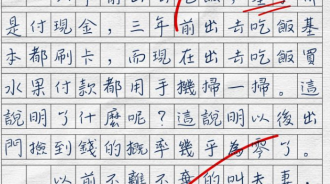 是付現金，三年前出去吃飯基
本都刷卡，而現在出去吃飯買
水果付款都用手機掃一掃。這
說明了什麼呢？這說明以後出
門撿到錢的概率幾乎為零了。
以前不離不棄的叫夫妻，